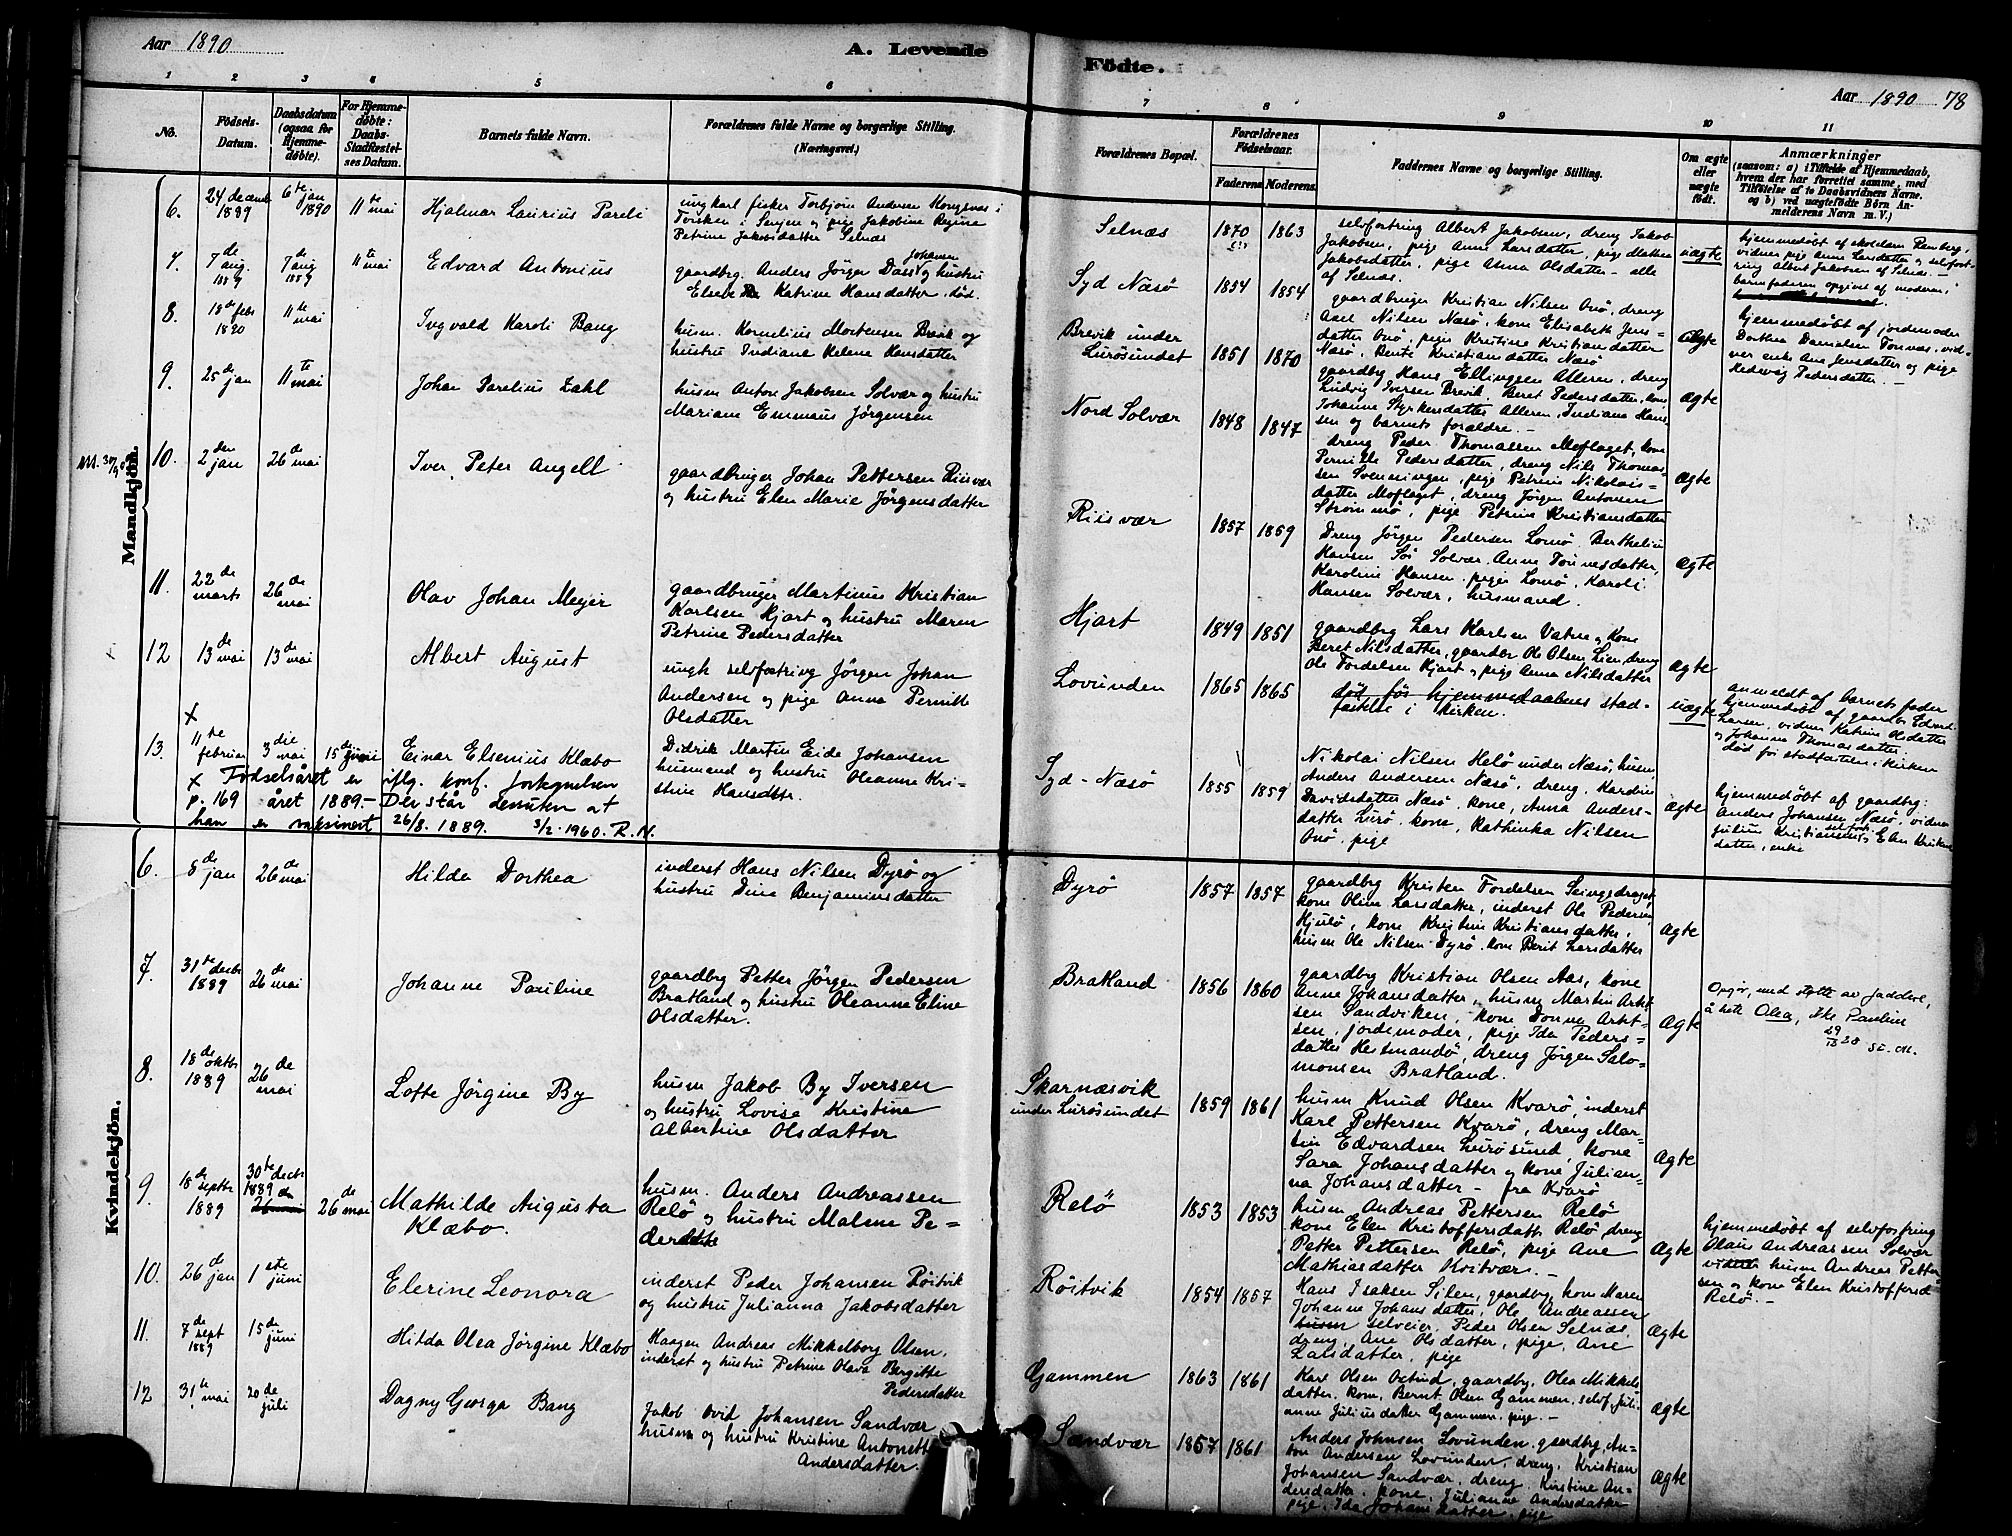 Aar 1890
A. Levende
Födte.
Aar 1890 78
1 2 3 4 5 6
7 8 9 10 11
No.
Födsels-
Datum.
Daabsdatum
(ogsaa for
Hjemme-
döbte).
For Hjemme-
döbte:
Daabs-
Stadfæstel-
ses Datum.
Barnets fulde Navn.
Forældrenes fulde Navne og borgerlige Stilling.
(Næringsvei.)
Forældrenes Bopæl.
Forældrenes
Födselsaar.
Faderens Moderens.
Faddernes Navne og borgerlige Stilling.
Om ægte
eller
uægte
födt.
Anmærkninger
(saasom: a) i Tilfælde af Hjemmedaab,
hvem der har forrettet samme, med
Tilföielse af to Daabsvidners Navne,
og b) ved uægtefödte Börn An-
melderens Navn m. V.)
Mandkjön.
6.
24 decemb
1889
6te jan
1890
11te mai
Hjalmar Laurius Pareli
ungkarl fisker Torbjörn Andersen Kongsnæs i
Torsken i Senjen og pige Jakobine Regine
Petrine Jakobsdatter Selnæs
Selnæs
1870 1863
selvfostring Albert Jakobsen, dreng Jakob
Jakobsen, pige Anne Larsdatter, pige Mathea
Jakobsdatter, pige Anna Olsdatter - alle
af Selnæs.
uægte
hjemmedöbt af skolelærer Renberg,
vidner pige Anne Larsdatter og selvfost-
ring Albert Jakobsen af Selnæs. -
barnefaderen opgivet af moderen,
7.
7de
aug.
1889
7de
aug
1889
11te mai
Edvard Antonius
gaardbrg. Anders Jörgen Dass Johansen og hustru
Elsebe Katrine Hansdatter. död.
Syd Næsö
1854 1854
gaardbruger Kristian Nilsen Onö, dreng
Axel Nilsen Næsö, kone Elisabeth Jens-
datter Onö, pige Kristine Kristiansdatter
Næsö, Bente Kristiansdatter Næsö
Ægte
hjemmedöbt af jordemoder
Dorthea Danielsen Tonnæs, vid-
ner enke Ane Jensdatter og pige
Hedevig Pedersdatter. -
8.
18de febr
1890
11te
mai
Ingvald Karoli Bang
husm. Kornelius Mortensen Brevik og
hustru Indiane Helene Hansdatter
Brevik under
Lurösundet
1851 1870
gaardbg Hans Ellingsen Alleren, dreng
Ludvig Iversen Brevik, Beret Pedersdatter, kone
Johanna Styrkersdatter Alleren, Indiana Han-
sen og barnets forældre. -
Ægte
9.
25de
jan
11te
mai
Johan Parelius Zahl
husm Anton Jakobsen Solvær og hustru
Mariane Emmaus Jörgensen
Nord Solvær
1848 1847
dreng Peder Thomassen Moflaget, kone
Pernille Pedersdatter, dreng Nils Thomas-
sen Svenningen, pige Petrine Nikolais-
datter Moflaget, dreng Jörgen Antonsen
Strömmö, pige Petrine Kristiansdatter
Ægte
10.
2den
jan
26de
mai
Iver Peter Angell
gaardbruger Johan Pettersen Riisvær
og hustru Elen Marie Jörgensdatter
Riisvær
1857 1859
Dreng Jörgen Pedersen Lomö, Berthelius
Hansen Sör Solvær, Anne Tönnesdatter,
Karoline Hansen, piger Lomö, Karoli
Hansen Solvær, husmand.
Ægte
11.
22de
marts
26de
mai
Olav Johan Meyer
gaardbruger Martinus Kristian
Karlsen Hjart og hustru Maren
Petrine Pedersdatter
Hjart
1849 1851
gaardbrg Lars Karlsen Vatne og kone
Beret Nilsdatter, gaardbr Ole Olsen Lien, dreng
Ole Tordelsen Hjart og pige Anna Nilsdatter
Ægte
12
13de
mai
13de
mai
Albert August
ungk selvfostring Jörgen Johan
Andersen og pige Anna Pernille
Olsdatter
Lovunden
1865 1865
död, för hjemmedaabens stad-
fæstelse i kirken.
uægte
anmeldt af barnets fader
hjemmedöbt af gaardbr Edvard
Larsen, vidner Katrine Olsdatter
og Johanna Thomasdatter
död för stadfæstelsen i kirken
13.
x
11te
februar
3die
mai
15de juni
Einar Elsenius Klæbo
Didrik Martin Eide Johansen
husmand og hustru Oleanne Kri-
stine Hansdtr.
Syd-Næsö
1855 1859
Nikolai Nilsen Helö under Næsö, husm,
Anders Andersen Næsö, dreng, Karoline
Davidsdatter Næsö, kone, Anna Anders-
datter Lurö, kone, Kathinka Nilsen
Onö, pige
Ægte
hjemmedöbt af gaardbg:
Anders Johansen Næsö, vidner
Julius Kristiansen, selvfost, Elen Kristens-
datter, enke
x Fødselsåret er iflg. konf. forkynnelsen
p. 169 året 1889.- Der står dessuten at
han er vaksinert 26/8. 1889. 3/2. 1960. R. N.
Kvindekjön.
6.
8de
jan
26de
mai
Hilda Dorthea
inderst Hans Nilsen Dyrö og
hustru Dine Benjaminsdatter
Dyrö
1857 1857
gaardbrg Kristen Tordelsen Seingsdraget,
kone Oline Larsdatter, inderst Ole Pedersen
Hjulö, kone Kristine Kristiansdatter,
husm Ole Nilsen Dyrö, kone Berit Larsdatter
Ægte
7.
31te decbr
1889
26de
mai
Johanne Pauline
gaardbrg Petter Jörgen Pedersen
Bratland og hustru Oleanne Eline
Olsdatter.
Bratland
1856 1860
gaardbg Kristian Olsen Aas, kone
Anne Johansdatter, husm Martin Arnt-
sen Sandviken, kone Donna Arnt-
sen, jordemoder, pige Ida Peders-
datter Hestmandö, dreng Jörgen Salo-
monsen Bratland.
Ægte
Opgir, med støtte av faddere,
å hete Olea, ikke Pauline
8.
18de oktbr
1889
26de
mai
Lofte Jörgine By
husm Jakob By Iversen
og hustru Lovise Kristine
Albertine Olsdatter
Skarnæsvik
under Lurösundet
1859 1861
husm Knud Olsen Kvarö, inderst
Karl Pettersen Kvarö, dreng Mar-
tin Edvardsen Lurösund, kone
Sara Johansdatter og kone Julian-
na Johansdatter - fra Kvarö
Ægte
9.
18de septbr
1889
30te decbr
1889
26de mai
Mathilde Augusta
Klæbo.
husm. Anders Andreassen
Relö og hustru Malene Pe-
dersdatter
Relö
1853 1853
husm Andreas Pettersen Relö
kone Elen Kristoffersdatter Relö, dreng
Petter Pettersen Relö, pige Ane
Mathiasdatter Kvitvær. -
Ægte
hjemmedöbt af selvfostring
Olaus Andreassen Solvær
vidner husm Andreas Petter-
sen og kone Elen Kristoffersd
Relö. -
10.
26de
jan
1ste
juni
Elerine Leonora
inderst Peder Johansen Röitvik
og hustru Julianna Jakobsdatter
Röitvik
1854 1857
Hans Isaksen Silen, gaardbg, kone Maren
Johanne Johansdatter, Ole Andreassen
husm selveier, Peder Olsen Selnæs,
dreng, Ane Olsdatter, pige, Ane
Larsdatter, pige
Ægte
11.
7de
sept
1889
15de
juni
Hilda Olea Jörgine Klæbo
Haagen Andreas Mikkelborg Olsen,
inderst og hustru Petrine Olava Bergitte
Pedersdatter
Gammen
1863 1861
Karl Olsen, gaardbg, Olea Mikkels
datter, kone, Bernt Olsen Gammen, selvf, Juli-
anne Juliusdatter Gammen, pige. -
Ægte
12
31te mai
20de
juli
Dagny Georga Bang
Jakob Johansen Sandvær
husm og hustru Kristine Antonette
Andersdatter.
Sandvær
1857 1861
Anders Johnsen Lovunden, gaardbg, An-
ton Andersen Lovunden, dreng, Kristian
Johansen Sandvær, dreng, Kristine An-
dersdatter, kone, Julianne Andersdatter
pige, Ida Johansdatter, pige
Ægte